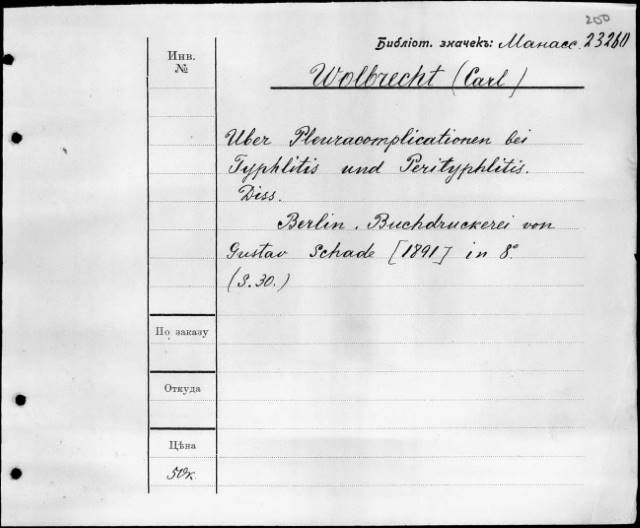 200
Библіот. значекъ: Манасс. 23260
Инв.
№
Wolbrecht (Carl)
Uber Pleuracomplicationen bei
Typhlitis und Perityphlitis.
Diss.
Berlin. Buchdruckerei von
Gustav Schade [1891] in 8°
(S. 30.)
По заказу
Откуда
Цѣна
50к.